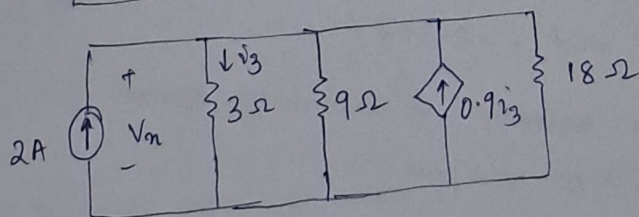 2A
+
Vn
-
↓ i3
3Ω
9Ω
0.9i3
18Ω